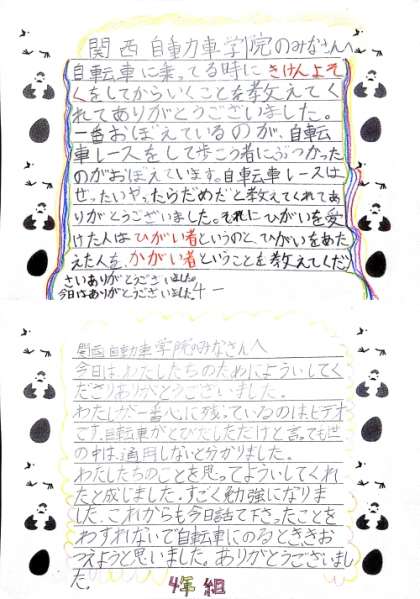 関西自動車学院のみなさんへ
自転車に乗ってる時にきけんよそ
くをしてからいくことを教えてく
れてありがとうございました。
一番おぼえているのが、自転
車レースをして歩こう者にぶつかった
のがおぼえています。自転車レースは
ぜったいやったらだめだと教えてくれてあ
りがとうございました。それにひがいを受
けた人はひがい者というのと、ひがいをあた
えた人を、かがい者ということを教えてくだ
さいありがとうございました。
今日はありがとうございました。4-
関西自動車学院のみなさんへ
今日は、わたしたちのためにようういしてく
ださりありがとうございました。
わたしが一番心に残っているのは、ビデオ
です。自転車がとびだしただけと言っても世
の中は、通用しないと分かりました。
わたしたちのことを思ってよういしてくれ
たと成しました。すごく勉強になりま
した。これからも今日話て下さったことを
わすれないで自転車にのるとききお
つえようと思いました。ありがとうございまし
た。
4年 組